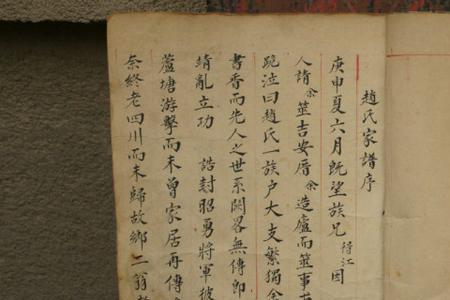 趙氏家譜序
庚申夏六月既望族兄待江因
人請余筮吉安厝余造廬而筮事
跪泣曰趙氏一族户大支繁獨余
書香而先人之世系闕畧無傳即
靖亂立功 誥封昭勇將軍彼
蘆塘游擊而未曾家居再傳
奈終老四川而未歸故鄉二翁